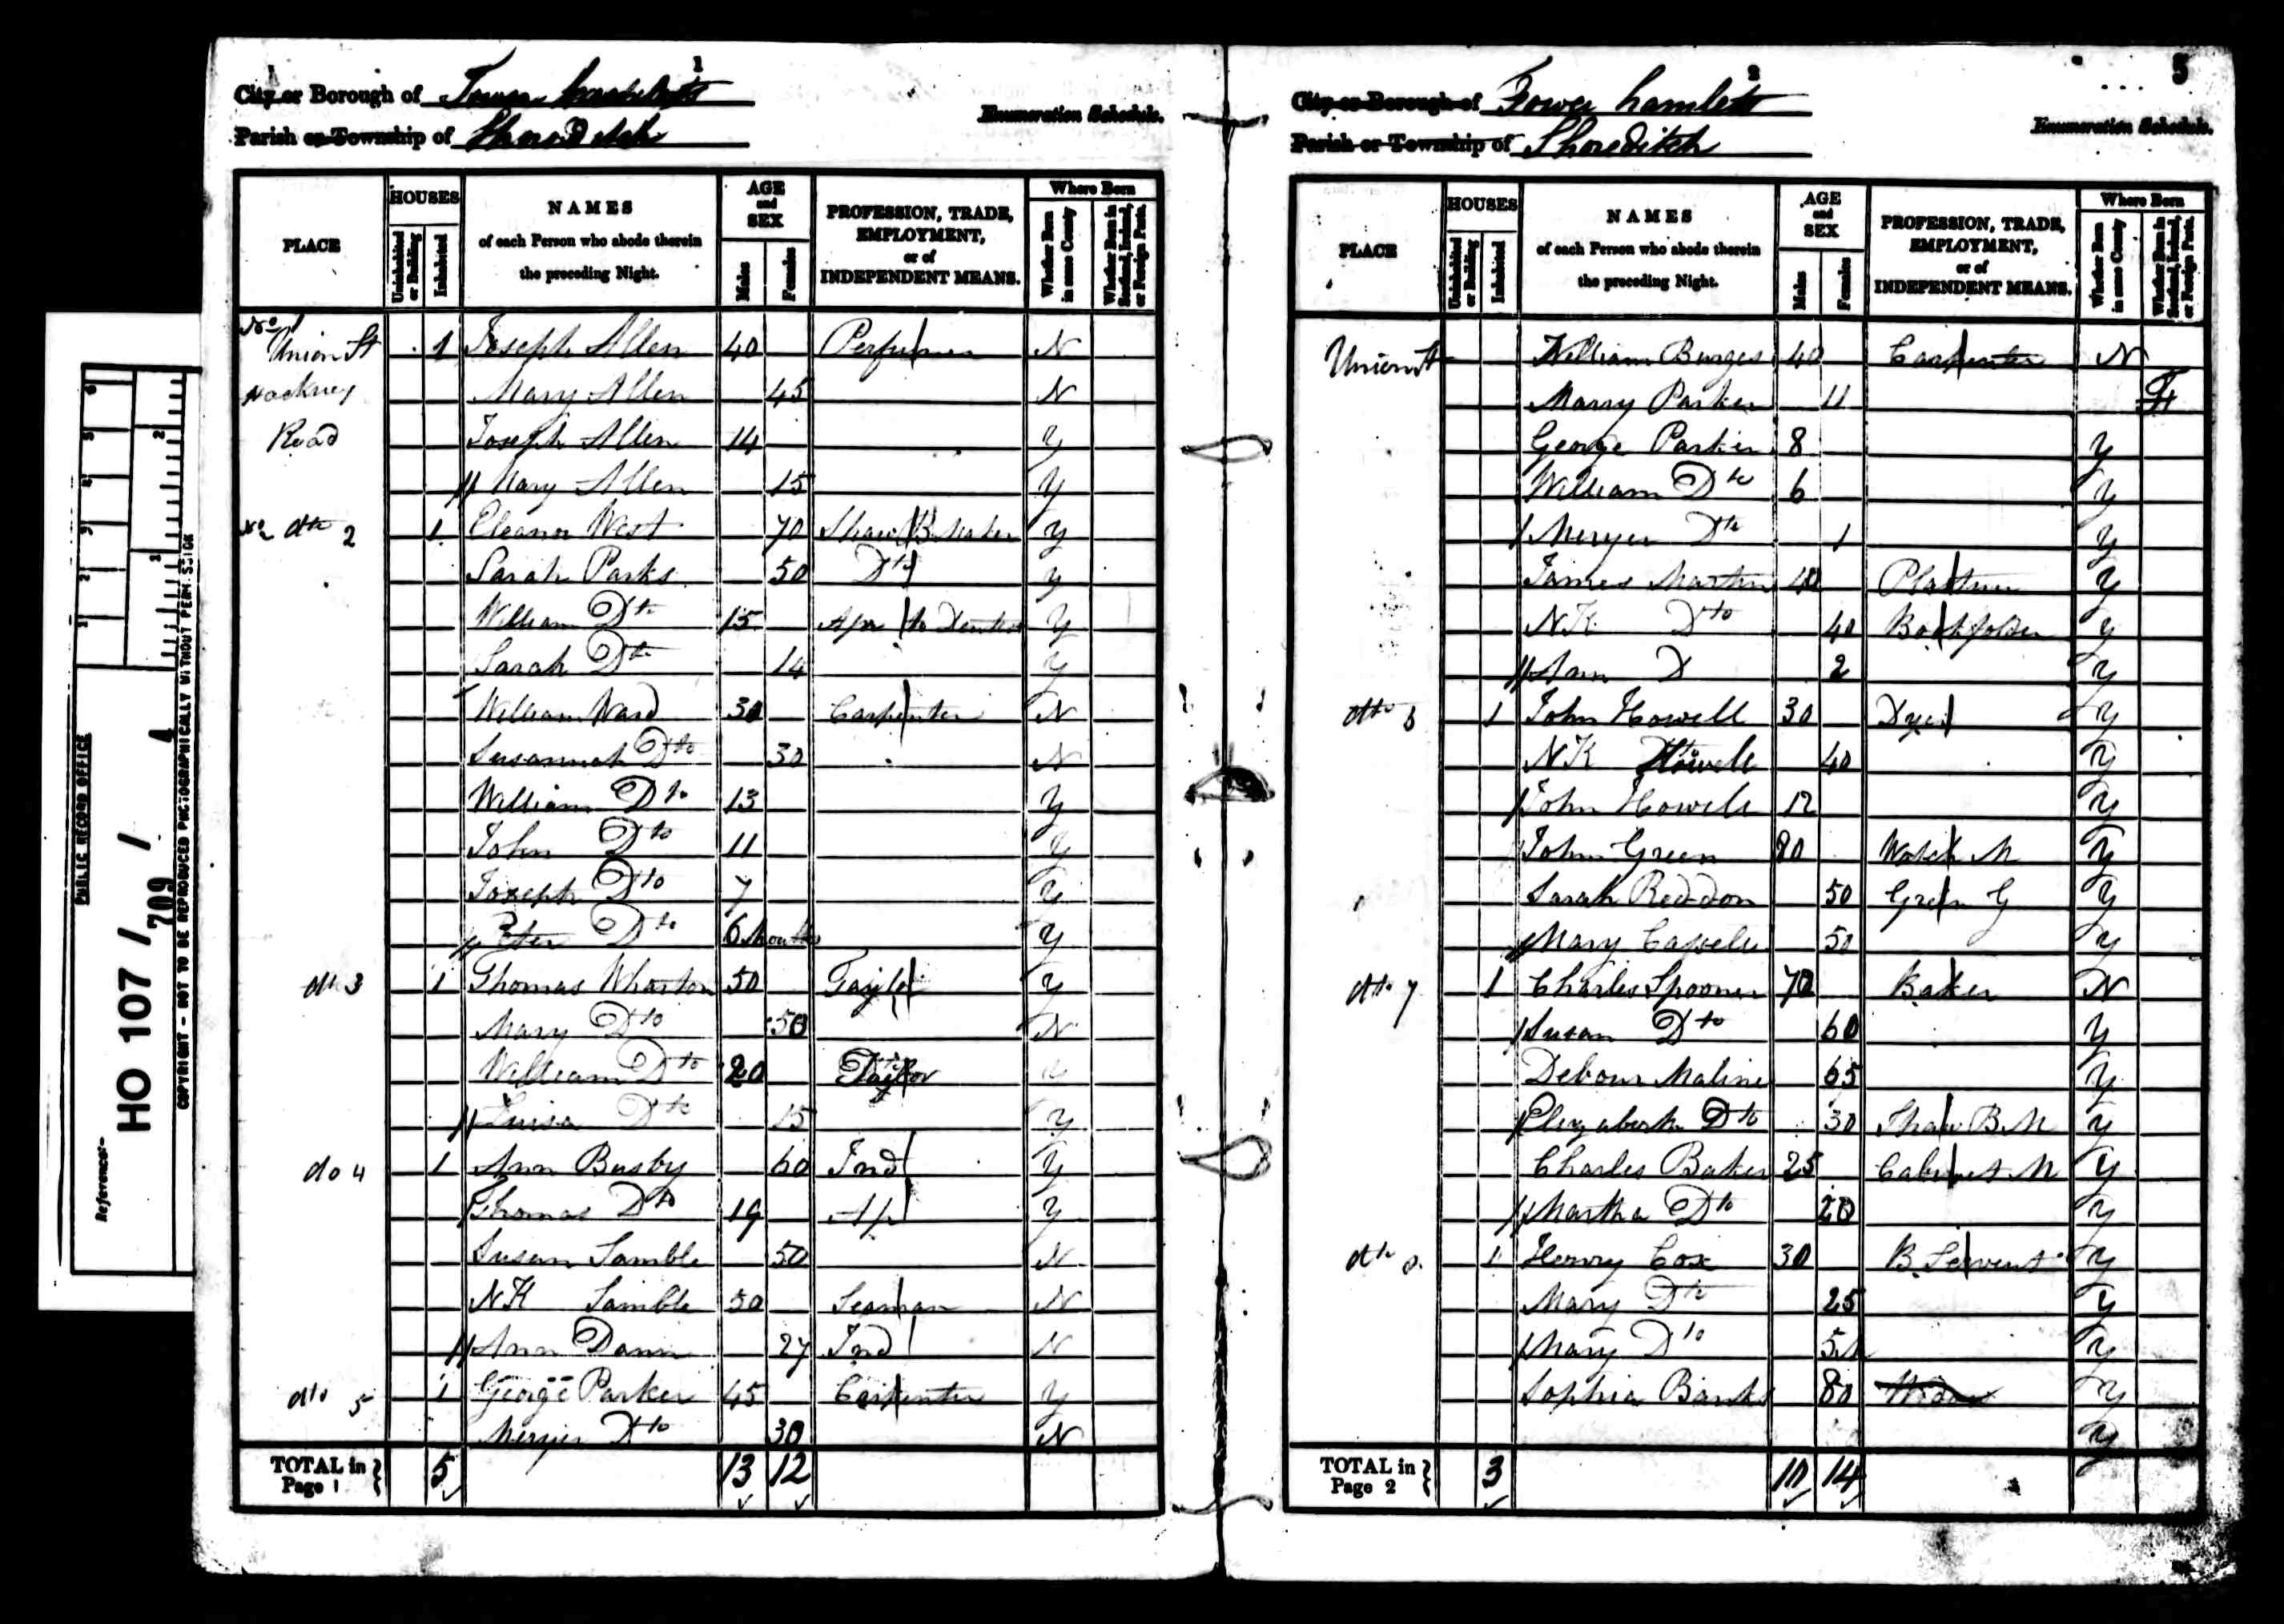 1
City or Borough of Tower Hamlets
Parish or Township of Shoreditch
Enumeration Schedule.
PLACE
HOUSES
Uninhabited or Building
Inhabited
NAMES
of each Person who abode therein
the preceding Night.
AGE and SEX
Males
Females
PROFESSION, TRADE,
EMPLOYMENT,
or of
INDEPENDENT MEANS.
Where Born
Whether Born in same County
Whether Born in Scotland, Ireland, or Foreign Parts.
No 1
Union St 1 Joseph Allen 40 Perfumer N
Hackney Mary Allen 45 N
Road Joseph Allen 14 Y
Mary Allen 15 Y
No dto 2 1 Eleanor West 70 Straw B Maker Y
Sarah Parks 50 Dto Y
William Dto 15 Apr to Dentist Y
Sarah Dto 14 Y
William Ward 30 Carpenter N
Susannah Dto 30 N
William Dto 13 Y
John Dto 11 Y
Joseph Dto 7 Y
Peter Dto 6 Months Y
dto 3 1 Thomas Wharton 50 Taylor Y
Mary Dto 50 N
William Dto 20 Y
Luisa Dto 15 Y
do 4 1 Ann Busby 60 Ind Y
Thomas Dto 19 Ap Y
Susan Samble 50 N
NK Samble 50 Seaman N
Ann Dann 27 Ind N
dto 5 1 George Parker 45 Carpenter Y
Meryer Dto 30 N
TOTAL in Page 1 5 13 12
2
5
City or Borough of Tower Hamlets
Parish or Township of Shoreditch
Enumeration Schedule.
PLACE
HOUSES
Uninhabited or Building
Inhabited
NAMES
of each Person who abode therein
the preceding Night.
AGE and SEX
Males
Females
PROFESSION, TRADE,
EMPLOYMENT,
or of
INDEPENDENT MEANS.
Where Born
Whether Born in same County
Whether Born in Scotland, Ireland, or Foreign Parts.
Union St William Burges 40 Carpenter N
Marry Parker 11
George Parker 8 Y
William Dto 6 Y
Meryer Dto 1 Y
James Martin Plasterer Y
NK Dto 40 Bookfolder Y
Ann D 2 Y
dto 6 1 John Howell 30 Dyer Y
NK 40 Y
John Howell 12 Y
John Green 80 Watch M Y
Sarah Reddon 50 Green G Y
Mary 50 Y
dto 7 1 Charles Spooner 70 Baker N
Susan Dto 60 Y
Debour Maline 65 Y
Elizabeth Dto 30 Straw B M Y
Charles Baker 25 Cabinet M Y
Martha Dto 20 Y
dto 8 1 Henry Cox 30 B. Servent Y
Mary Dto 25 Y
Mary Dto 5M Y
Sophia Banks 80 Y
Y
TOTAL in Page 2 3 10 14
PUBLIC RECORD OFFICE
Reference:-
HO 107 / 709 / 4
COPYRIGHT - NOT TO BE REPRODUCED PHOTOGRAPHICALLY WITHOUT PERMISSION